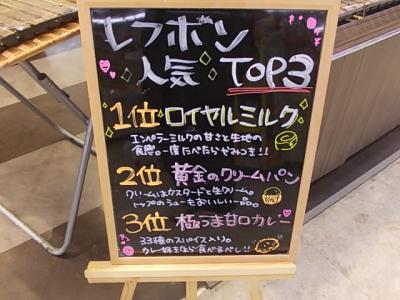 レフボン
人気 TOP3
1位 ロイヤルミルク
エンペラーミルクの甘さと生地の
食感。一度たべたらやみつき!!
2位 黄金のクリームパン
クリームはカスタードと生クリーム。
トップのシューもおいしい…。
3位 極うま甘口カレー
33種のスパイス入り。
カレー好きなら食べるべし!!